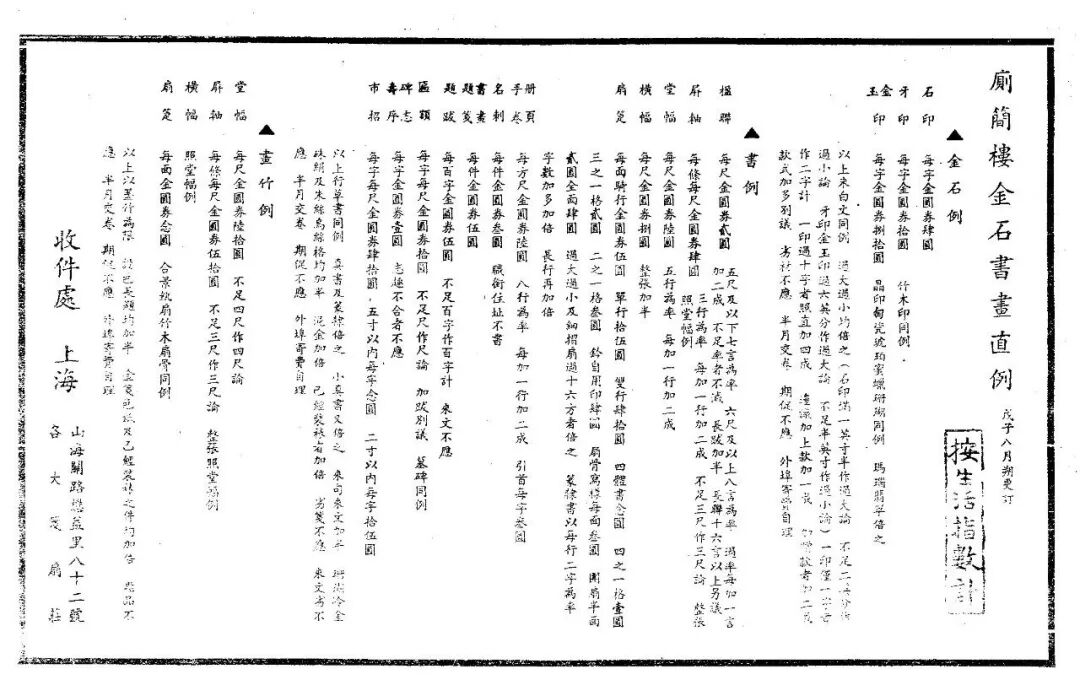 廁簡樓金石書畫直例
戊子八月朔更訂
按生活指數計
▲金石例
石印 每字金圓券肆圓
牙印 每字金圓券拾圓 竹木印同例
金玉印 每字金圓券捌拾圓 晶印陶瓷琥珀蜜蠟珊瑚同例 瑪瑙翡翠倍之
以上朱白文同例 過大過小均倍之(石印滿一英寸半作過大論 不足二英分作
過小論 牙印金玉印過六英分作過大論 不足半英寸作過小論)一印僅一字者
作二字計 一印過十字者照直加四成
款式加多別議 劣材不應 半月交卷 期促不應 外埠寄費自理
▲書例
楹聯 每尺金圓券貳圓 五尺及以下七言為率 六尺及以上八言為率 過率每加一言
加二成 不足率者不減 長跋加半 長聯十六言以上另議
屏軸 每條每尺金圓券肆圓 三行為率 每加一行加二成 不足三尺作三尺論 整張
照堂幅例
堂幅 每尺金圓券陸圓 五行為率 每加一行加二成
橫幅 每尺金圓券捌圓 整張加半
扇箑 每面騎行金圓券伍圓 單行拾伍圓 雙行肆拾圓 四體書念圓 四之一格壹圓
三之一格貳圓 二之一格叁圓 鈐自用印肆圓 扇骨寫樣每面叁圓 團扇半面
貳圓全面肆圓 過大過小及細楷扇過十六方者倍之 篆隸書以每行二字為率
字數加多加倍 長行再加倍
冊頁手卷 每方尺金圓券陸圓 八行為率 每加一行加二成 引首每字叁圓
名刺 每件金圓券叁圓 職銜住址不書
書畫題箋 每件金圓券伍圓
題跋 每百字金圓券伍圓 不足百字作百字計 來文不應
匾額 每字每尺金圓券拾圓 不足尺作尺論 加跋別議 墓碑同例
碑志壽序 每字金圓券壹圓 志趣不合者不應
市招 每字每尺金圓券肆拾圓 五寸以內每字念圓 二寸以內每字拾伍圓
以上行草書同例 真書及篆隸倍之 小真書又倍之 來句來文加半 珊瑚冷金
硃絹及朱絲烏絲格均加半 泥金加倍 已經裝裱者加倍 劣箋不應 來文考不
應 半月交卷 期促不應 外埠寄費自理
▲畫竹例
堂幅 每尺金圓券陸拾圓 不足四尺作四尺論
屏軸 每條每尺金圓券伍拾圓 不足三尺作三尺論 整張照堂幅例
橫幅 照堂幅例
扇箑 每面金圓券念圓 合景紈扇竹木扇骨同例
以上以墨竹為限 設色長題均加半 金箋色紙及已經裝裱之件均加倍 劣品不
應 半月交卷 期促不應 外埠寄費自理
收件處 上海
山海關路懋益里八十二號
各大箋扇莊